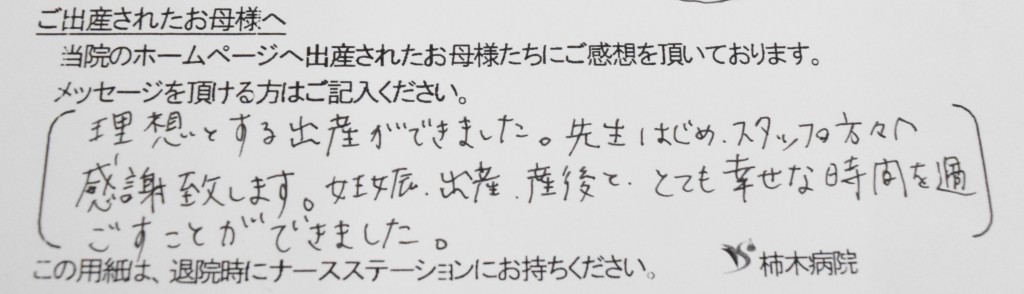 ご出産されたお母様へ
当院のホームページへ出産されたお母様たちにご感想を頂いております。
メッセージを頂ける方はご記入ください。
理想とする出産ができました。先生はじめ、スタッフの方々へ
感謝致します。妊娠、出産、産後と、とても幸せな時間を過
ごすことができました。
この用紙は、退院時にナースステーションにお持ちください。 柿木病院